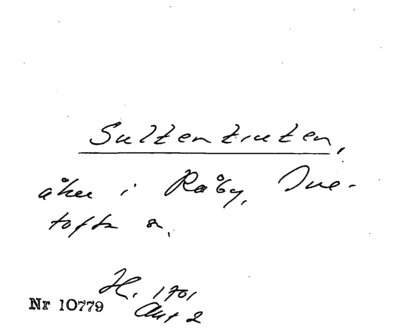 Sultentuten,
åker i Råby, Tue-
tofta s.
H. 1701
Akt 2
Nr 10779